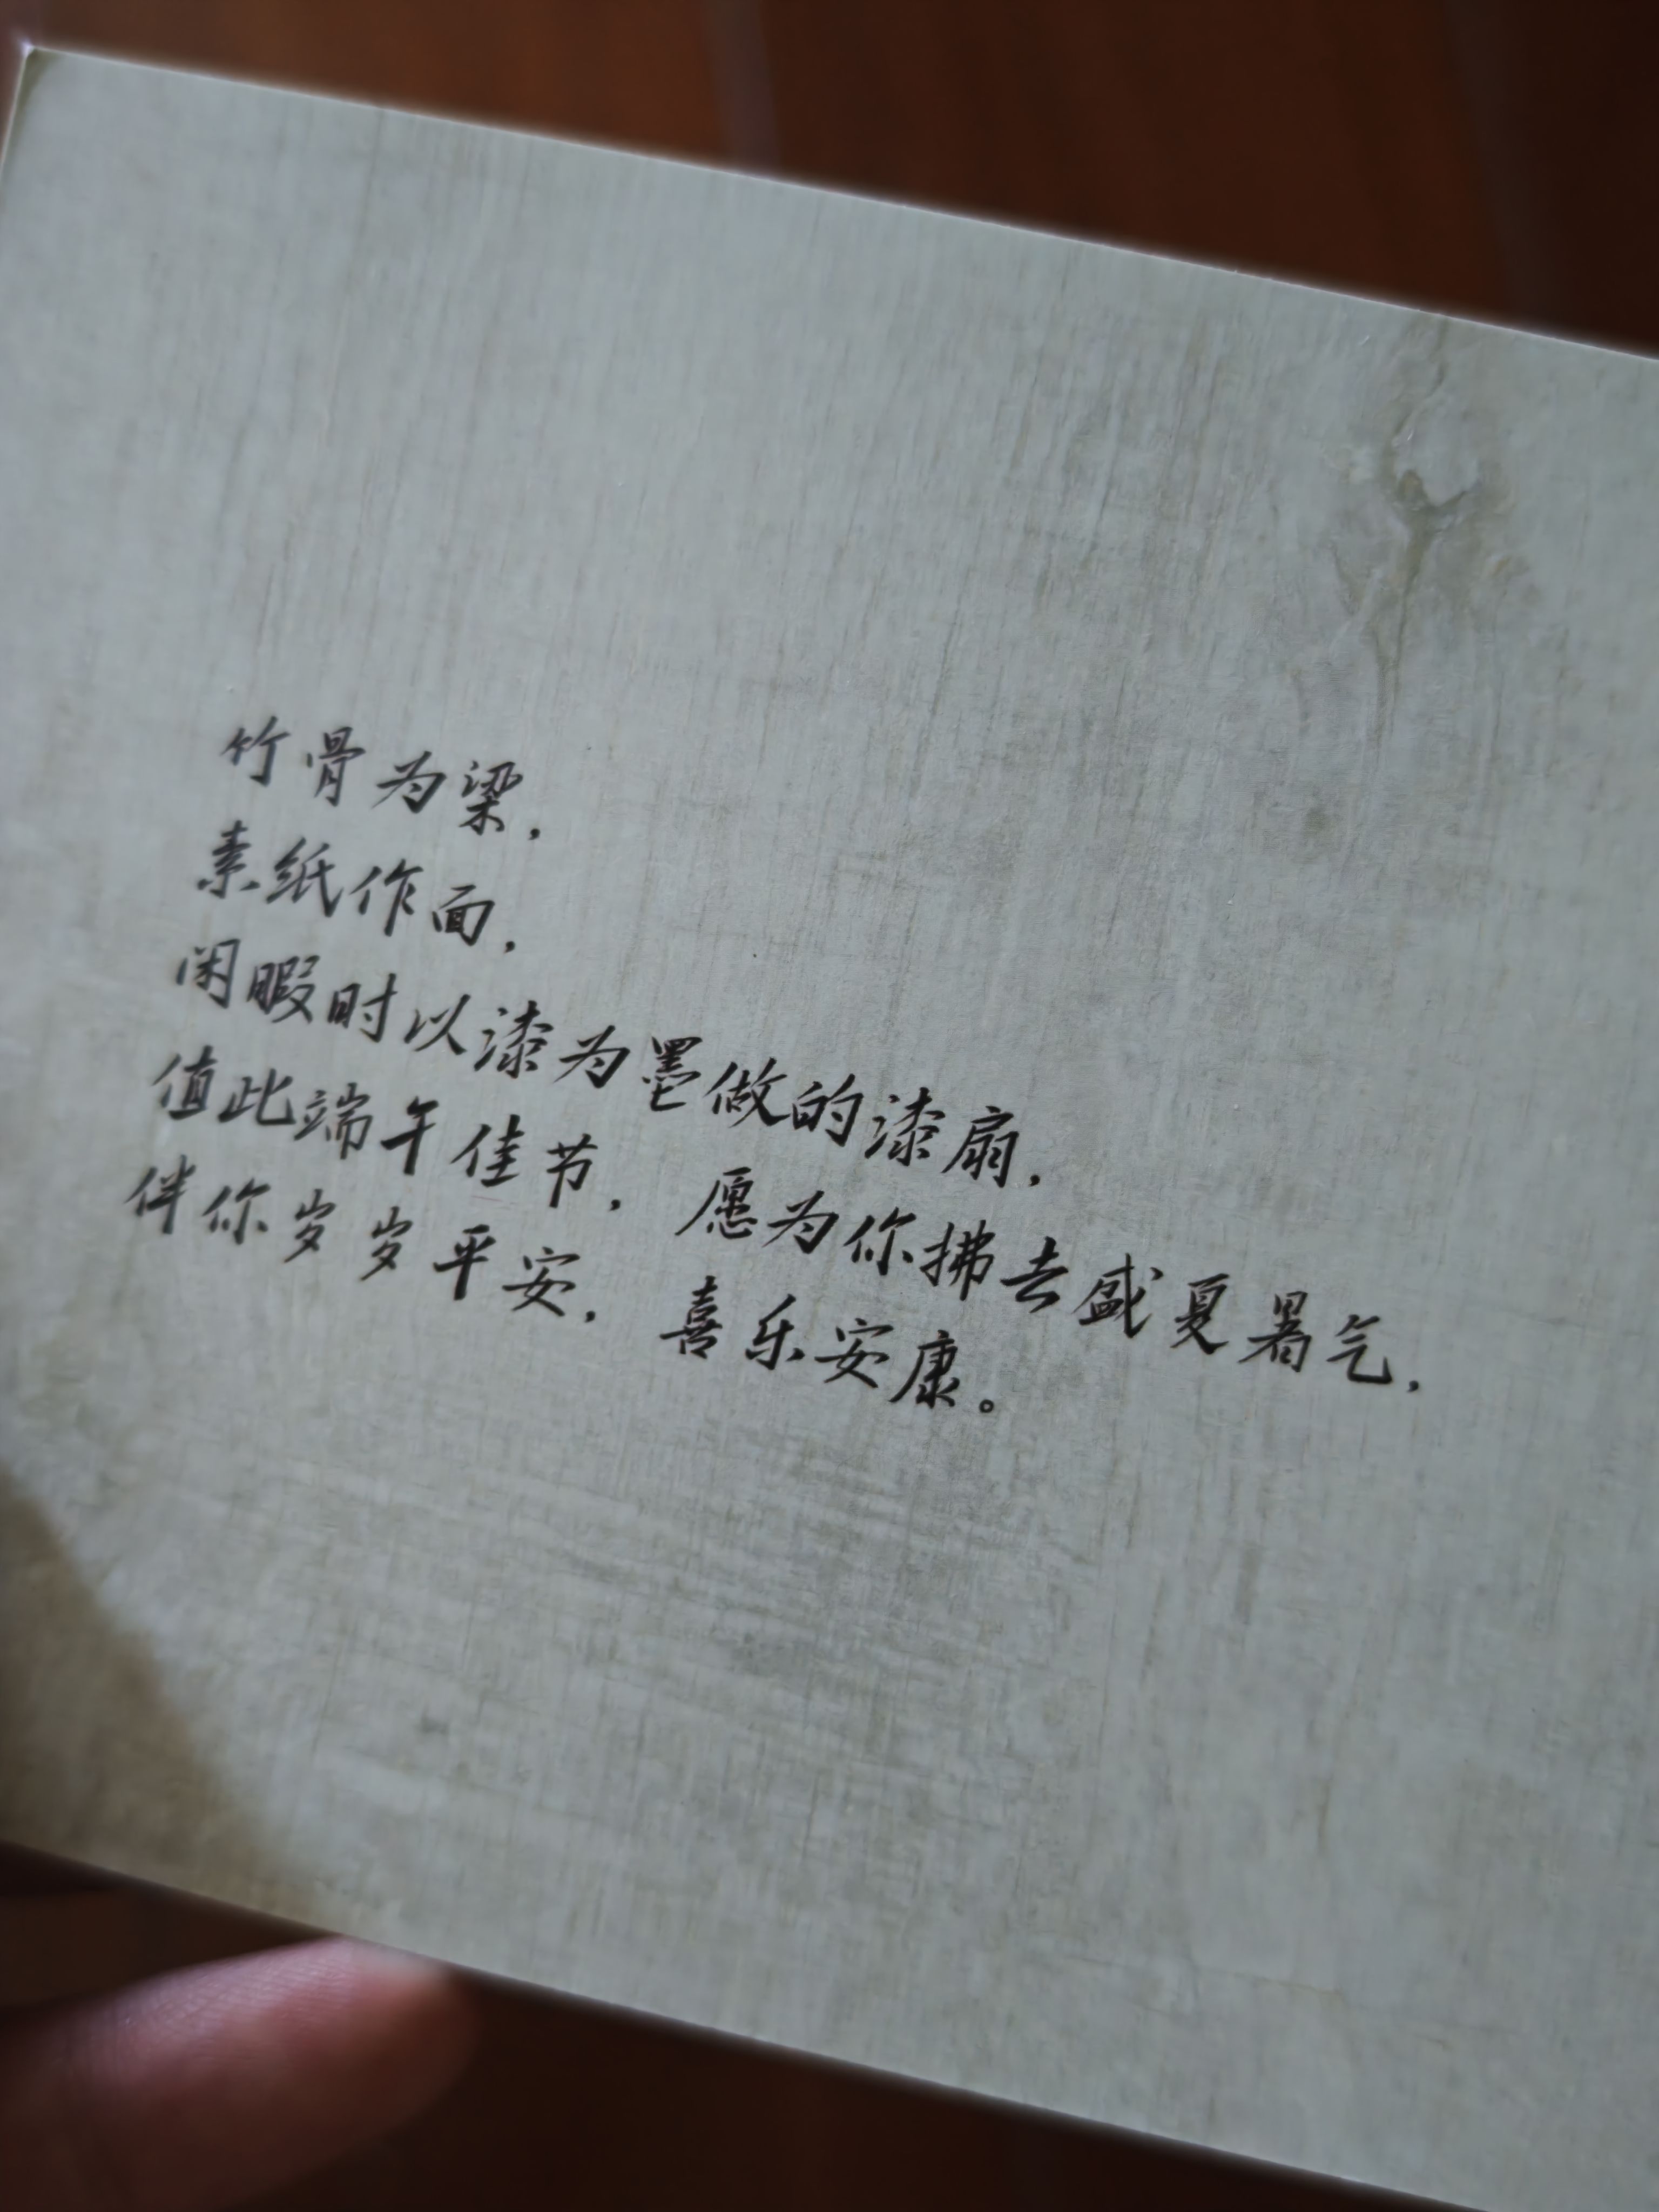 竹骨为梁，
素纸作面，
闲暇时以漆为墨做的漆扇，
值此端午佳节，愿为你拂去盛夏暑气，
伴你岁岁平安，喜乐安康。